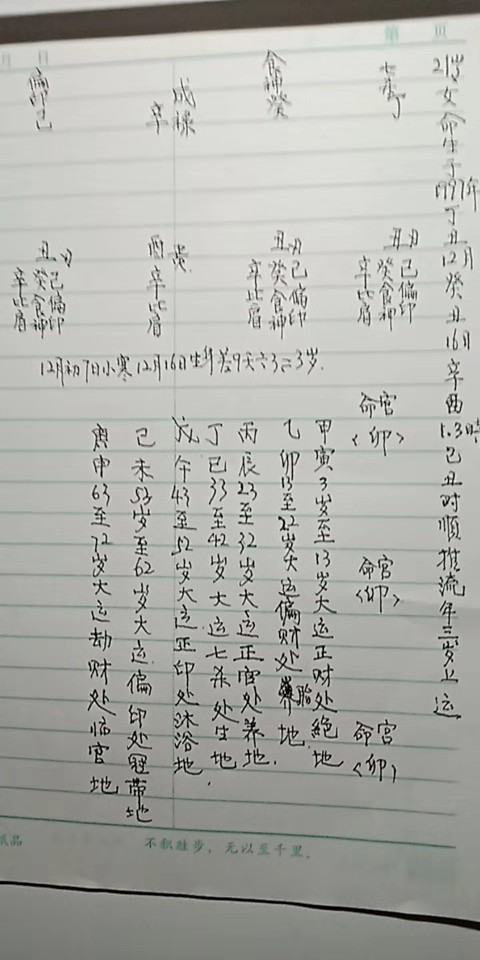 月 日 第 页
21岁女命生于1997年丁丑12月癸丑16日辛酉1.3時己丑时顺推流年三岁上运
七杀丁
食神癸
成禄
辛
偏印己
丑
己偏印
癸食神
辛比肩
丑
己偏印
癸食神
辛比肩
酉
辛比肩
丑
己偏印
癸食神
辛比肩
12月初7日小寒12月16日生 差9天 3=3岁.
命宫
<卯>
命宫
<卯>
命宫
<卯>
甲寅3岁至13岁大运正财处絶地
乙卯13至22岁大运偏财处胎地.
丙辰23至32岁大运正官处养地.
丁巳33至42岁大运七杀处生地.
戊午43至52岁大运正印处沐浴地
己未53岁至62岁大运偏印处冠带地
庚申63至72岁大运劫财处临官地
不积跬步，无以至千里.
纸品